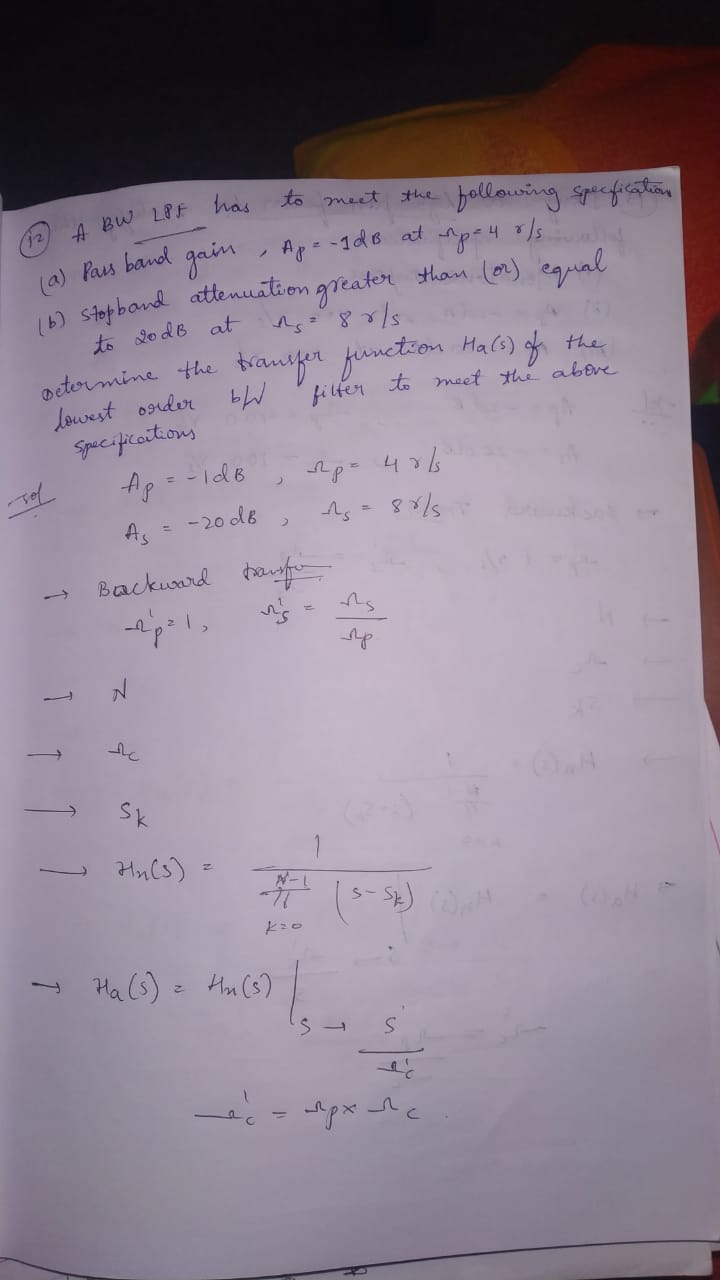 (12) A BW LPF has to meet the following specification
(a) Pass band gain, Ap = -1dB at Ωp = 4 r/s
(b) Stopband attenuation greater than (or) equal
to 20dB at Ωs = 8 r/s
Determine the transfer function Ha(s) of the
lowest order bW filter to meet the above
Specifications
Sol Ap = -1dB , Ωp = 4 r/s
As = -20dB , Ωs = 8 r/s
→ Backward transfo
Ω'p = 1, Ω's = Ωs / Ωp
→ N
→ Ωc
→ Sk
→ Hn(s) = 1 / N-1 π k=0 (s-sk)
→ Ha(s) = Hn(s) | s → s / Ω'c
Ω'c = Ωp x Ωc .